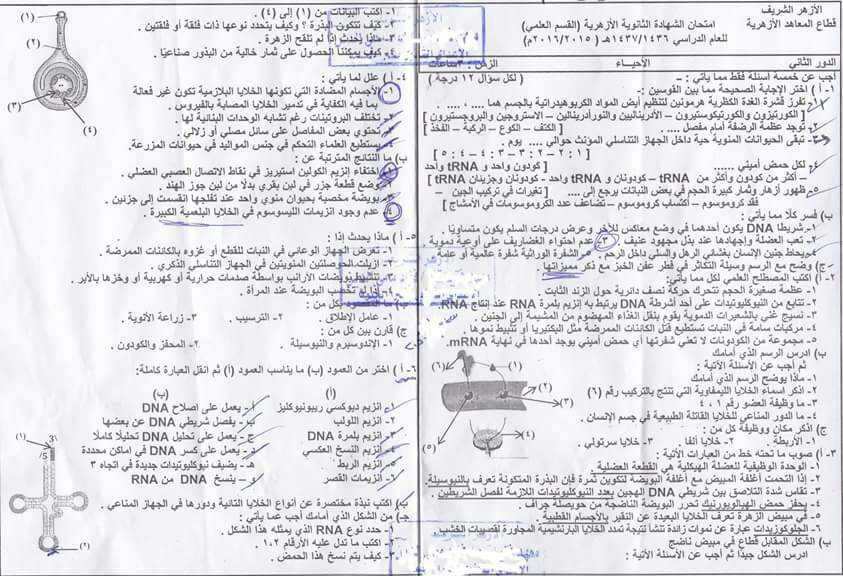 الأزهر الشريف
قطاع المعاهد الأزهرية
امتحان الشهادة الثانوية الأزهرية (القسم العلمي)
للعام الدراسي ١٤٣٧/١٤٣٦هـ (٢٠١٦/٢٠١٥م)
الدور الثاني الأحياء الزمن : ٣ساعات
أجب عن خمسة أسئلة فقط مما يأتي : – ( لكل سؤال ١٢ درجة )
١- ( أ ) اختر الإجابة الصحيحة مما بين القوسين :
١- تفرز قشرة الغدة الكظرية هرمونين لتنظيم أيض المواد الكربوهيدراتية بالجسم هما .... ، ....
[ الكورتيزون والكورتيكوستيرون – الأدرينالين والنورأدرينالين – الاستروجين والبروجستيرون ]
٢- توجد عظمة الرضفة أمام مفصل .... [ الكتف – الكوع – الركبة – الفخذ ]
٣- تبقى الحيوانات المنوية حية داخل الجهاز التناسلي المؤنث حوالي .... يوم .
[ ١ : ٢ – ٢ : ٣ – ٣ : ٤ – ٤ : ٥ ]
٤- لكل حمض أميني ..... [ كودون واحد و tRNA واحد
– أكثر من كودون وأكثر من tRNA – كودونان و tRNA واحد – كودونان وجزيئان tRNA ]
٥- ظهور أزهار وثمار كبيرة الحجم في بعض النباتات يرجع إلى .... [ تغيرات في تركيب الجين –
فقد كروموسوم – اكتساب كروموسوم – تضاعف عدد الكروموسومات في الأمشاج ]
ب) فسر كلًا مما يأتي :
١- شريطا DNA يكون أحدهما في وضع معاكس للآخر وعرض درجات السلم يكون متساويًا .
٢- تعب العضلة وإجهادها عند بذل مجهود عنيف . ٣- عدم احتواء الغضاريف على أوعية دموية .
٤- يحاط جنين الإنسان بغشائي الرهل والسلي داخل الرحم . ٥- الشفرة الوراثية شفرة عالمية أو عامة
ج) وضح مع الرسم وسيلة التكاثر في فطر عفن الخبز مع ذكر مميزاتها .
٢- أ) اكتب المصطلح العلمي لكل مما يأتي :
١- عظمة صغيرة الحجم تتحرك حركة نصف دائرية حول الزند الثابت .
٢- تتابع من النيوكليوتيدات على أحد أشرطة DNA يرتبط به إنزيم بلمرة RNA عند إنتاج RNA.
٣- نسيج غني بالشعيرات الدموية يقوم بنقل الغذاء المهضوم من المشيمة إلى الجنين .
٤- مركبات سامة في النبات تستطيع قتل الكائنات الممرضة مثل البكتيريا أو تثبيط نموها .
٥- مجموعة من الكودونات لا تعني شفرتها أي حمض أميني يوجد أحدها في نهاية mRNA.
ب) ادرس الرسم الذي أمامك
ثم أجب عن الأسئلة الآتية :
١- ماذا يوضح الرسم الذي أمامك
٢- اذكر اسماء الخلايا الليمفاوية التي تنتج بالتركيب رقم (٦)
٣- ما وظيفة العضو رقم ١ ، ٤
٤- ما الدور المناعي للخلايا القاتلة الطبيعية في جسم الإنسان .
ج) اذكر مكان ووظيفة كل من :
١- الأربطة . ٢- خلايا ألفا . ٣- خلايا سرتولي .
(٦)
(١)
(٢)
(٣)
(٤)
(٥)
٣- أ) صوب ما تحته خط من العبارات الآتية :
١- الوحدة الوظيفية للعضلة الهيكلية هي القطعة العضلية
٢- إذا التحمت أغلفة المبيض مع أغلفة البويضة لتكوين ثمرة فإن البذرة المتكونة تعرف بالنيوسيلة .
٣- تقاس شدة التلاصق بين شريطي DNA الهجين بعدد النيوكليوتيدات اللازمة لفصل الشريطين .
٤- يحفز حمض الهيالويورنيك تحرر البويضة الناضجة من حويصلة جراف .
٥- في مبيض الزهرة تعرف الخلايا البعيدة عن النقير بالأجسام القطبية
٦- الجلوكوزيدات عبارة عن نموات زائدة تنشأ نتيجة تمدد الخلايا البارنشيمية المجاورة لقصيبات الخشب
ب) الشكل المقابل قطاع في مبيض ناضج
ادرس الشكل جيدًا ثم أجب عن الأسئلة الآتية :
١- اكتب البيانات من (١) إلى (٤) .
٢- كيف تتكون البذرة ؟ وكيف يتحدد نوعها ذات فلقة أو فلقتين .
٣- ماذا يحدث إذا لم تلقح الزهرة .
٤- كيف يمكننا الحصول على ثمار خالية من البذور صناعيًا .
(١)
(٢)
(٣)
(٤)
٤- أ ) علل لما يأتي :
١- الأجسام المضادة التي تكونها الخلايا البلازمية تكون غير فعالة
بما فيه الكفاية في تدمير الخلايا المصابة بالفيروس .
٢- تختلف البروتينات رغم تشابه الوحدات البنائية لها .
٣- تحتوي بعض المفاصل على سائل مصلي أو زلالي .
٤- يستطيع العلماء التحكم في جنس المواليد في حيوانات المزرعة.
ب) ما النتائج المترتبة عن :
١- اختفاء إنزيم الكولين استيريز في نقاط الاتصال العصبي العضلي .
٢- وضع قطعة جزر في لبن بقري بدلًا من لبن جوز الهند .
٣- بويضة مخصبة بحيوان منوي واحد عند تفلجها انقسمت إلى جزئين .
٤- عدم وجود انزيمات الليسوسوم في الخلايا البلعمية الكبيرة .
٥- أ ) ماذا يحدث إذا :
١- تعرض الجهاز الوعائي في النبات للقطع أو غزوه بالكائنات الممرضة .
٢- ازيلت الحوصلتين المنويتين في الجهاز التناسلي الذكري .
٣- تنشيط بويضات الأرانب بواسطة صدمات حرارية أو كهربية أو وخزها بالأبر .
٤- إذا لم تخصب البويضة عند المرأة .
ب) ما المقصود بكل من :
١- عامل الإطلاق . ٢- الترسيب . ٣- زراعة الأنوية .
ج) قارن بين كل من :
١- الإندوسبرم والنيوسيلة . ٢- المحفز والكودون .
٦- أ ) اختر من العمود (ب) ما يناسب العمود (أ) ثم انقل العبارة كاملة:
(أ) (ب)
١- إنزيم ديوكسي ريبونيوكليز أ- يعمل على إصلاح DNA
٢- انزيم اللولب ب- يفصل شريطي DNA عن بعضها
٣- انزيم بلمرة DNA ج- يعمل على تحليل DNA تحليلًا كاملًا
٤- انزيم النسخ العكسي د- يعمل على كسر DNA في اماكن محددة
٥- انزيم الربط هـ- يضيف نيوكليوتيدات جديدة في اتجاه ٣
٦- انزيمات القصر و- ينسخ DNA من RNA
ب) اكتب نبذة مختصرة عن أنواع الخلايا التائية ودورها في الجهاز المناعي .
جـ) من الشكل الذي أمامك أجب عما يأتي :
١- حدد نوع RNA الذي يمثله هذا الشكل .
٢- اكتب ما تدل عليه الأرقام ١،٢
٣- كيف يتم نسخ هذا الحمض .
(١)
3
5
(٢)